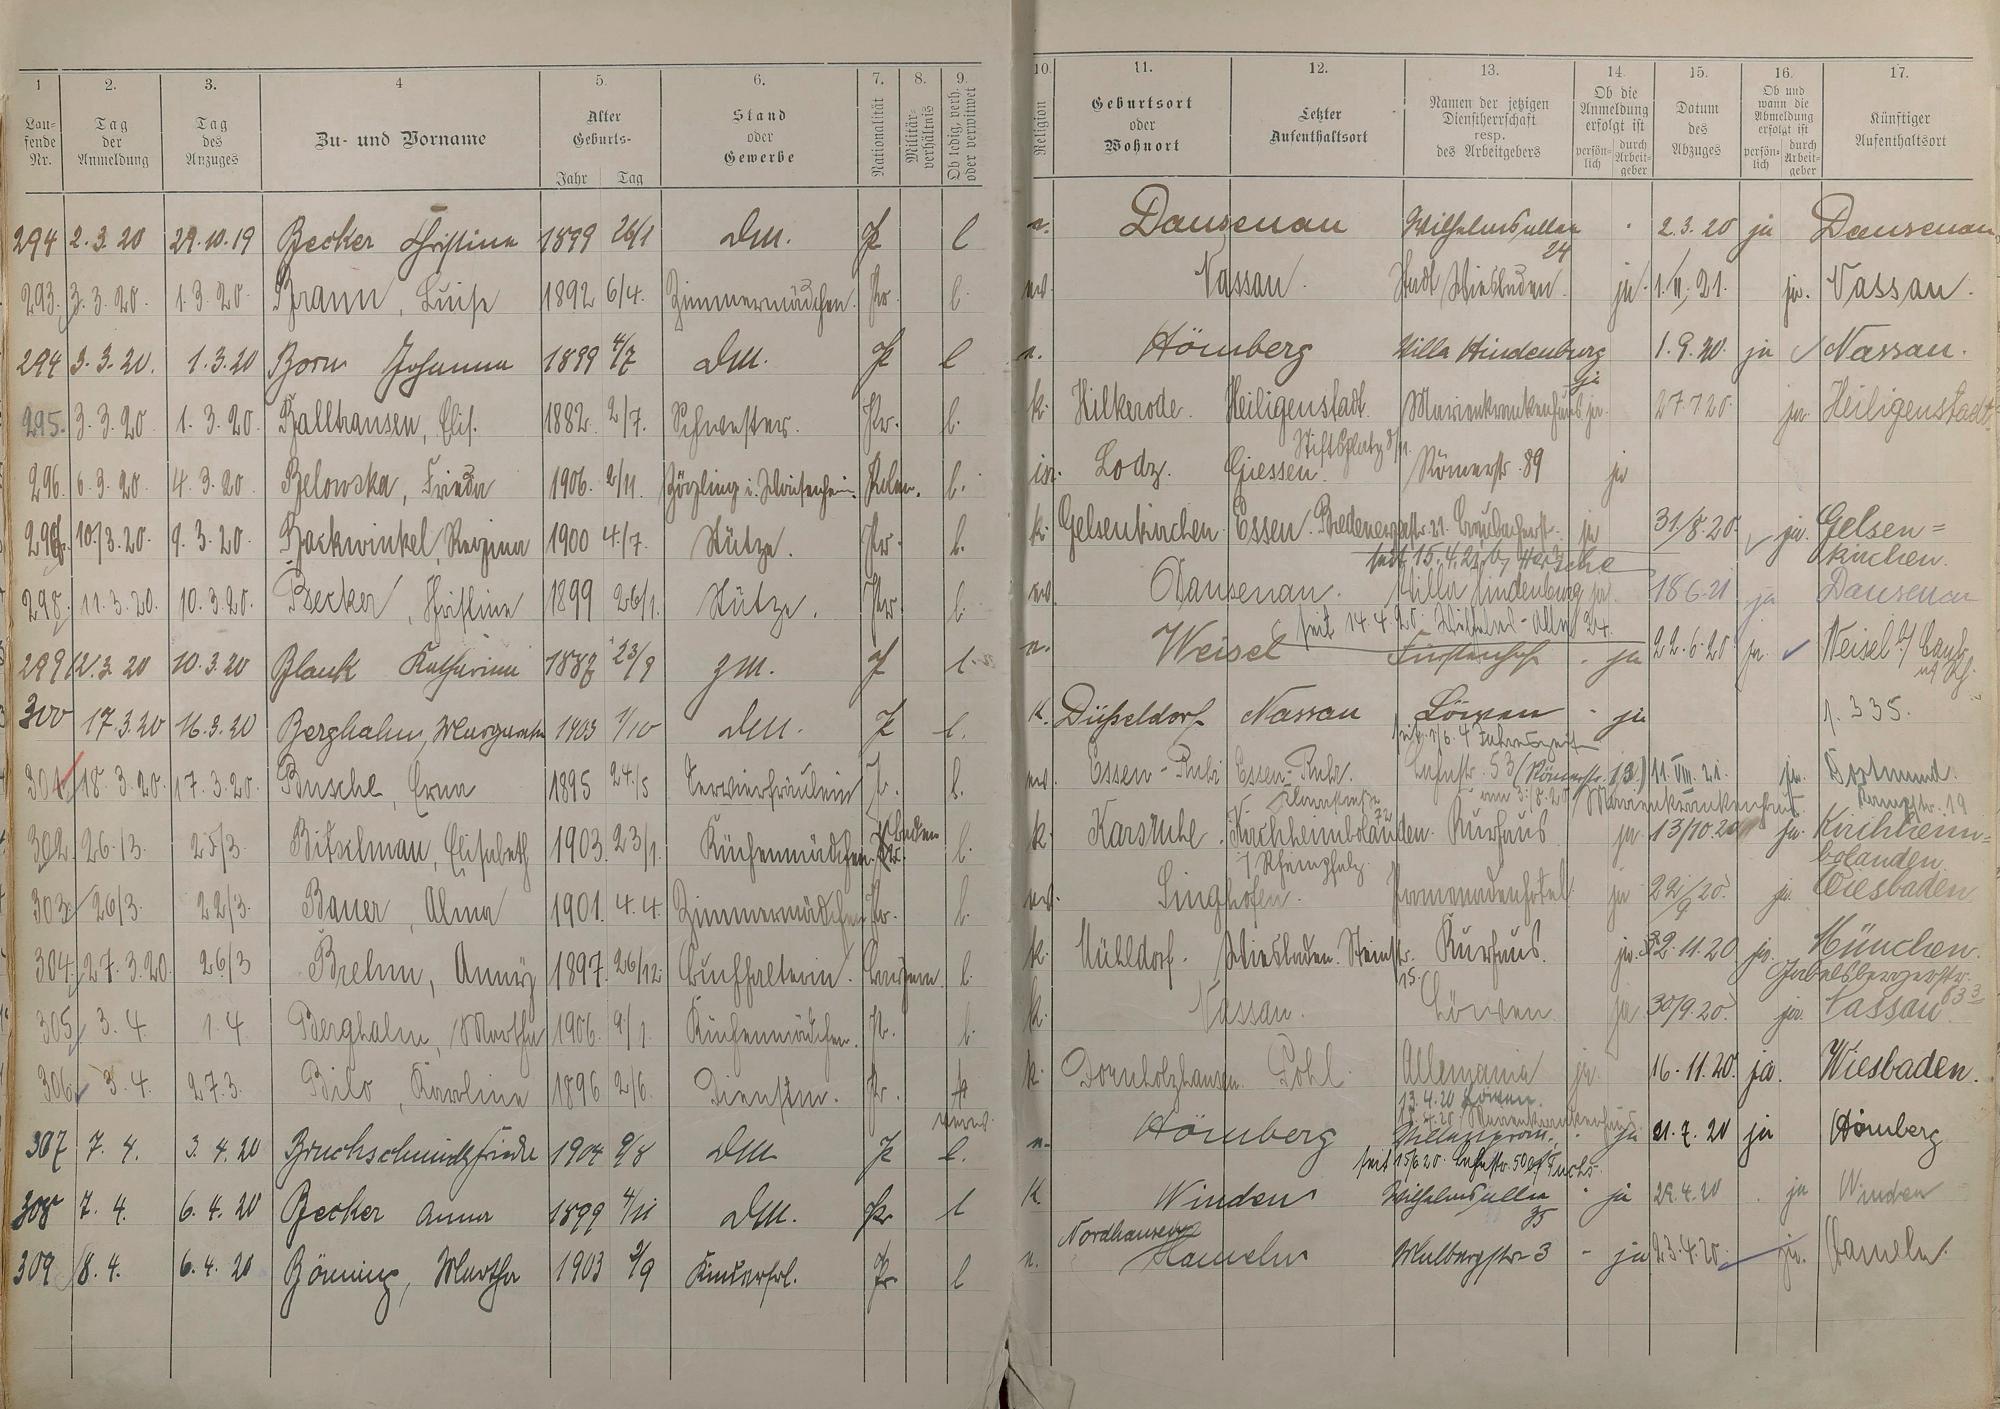 1 2. 3. 4 5. 6. 7. 8. 9. 10. 11. 12. 13. 14. 15. 16. 17.
Laufende Nr.
Tag der Anmeldung
Tag des Anzuges
Zu- und Vorname
Alter Geburts-
Jahr Tag
Stand oder Gewerbe
Nationalität
Militärverhältnis
Ob ledig, verh. oder verwitwet
Religion
Geburtsort oder Wohnort
Letzter Aufenthaltsort
Namen der jetzigen Dienstherrschaft resp. des Arbeitgebers
Ob die Anmeldung erfolgt ist
persönlich durch Arbeitgeber
Datum des Abzuges
Ob und wann die Abmeldung erfolgt ist
persönlich durch Arbeitgeber
Künftiger Aufenthaltsort
294 2.3.20 29.10.19 Becker Christine 1899 26/1 DM. Pr l Dausenau Wilhelmsallee 24 2.3.20 ja Dausenau
293. 3.3.20. 1.3.20. Braun, Luise 1892 6/4. Zimmermädchen. Pr. l. ev. Nassau. Stadt Wiesbaden. ja. 1.II.21. ja. Nassau.
294 3.3.20. 1.3.20 Born Johanna 1899 4/7 DM. Pr l Hömberg Villa Hindenburg ja 1.9.20. ja Nassau.
295. 3.3.20. 1.3.20. Ballhausen, Elis. 1882. 2/7. Schwester. Pr. l. k. Hilkerode. Heiligenstadt. Marienkrankenhaus ja. 27.7.20. ja. Heiligenstadt.
296. 6.3.20. 4.3.20. Belowska, Frieda 1906. 2/11. Zögling i. Waisenheim. Polen. l. isr. Lodz. Giessen. Stiftsplatz Römerstr. 89 ja
10./3.20. 9.3.20. Backwinkel, Regina 1900 4/7. Stütze. Pr. l. k. Gelsenkirchen. Essen. ja 31/8.20. ja. Gelsenkirchen.
seit 15.4.21 b/ Hersche
298. 11.3.20. 10.3.20. Becker, Christine 1899 26/1. Stütze. Pr. l. ev. Dausenau. Villa Hindenburg ja. 18.6.21 ja Dausenau
seit 14.4.20. Wilhelms-Allee 24.
299 12.3.20 10.3.20 Blank Katharina 23/9 l. Weisel Fürstenhof - ja 22.6.20 ja. Weisel b/ Caub
300 17.3.20 16.3.20 Berghahn, Margareta 1903 1/10 DM. Pr l. k. Düsseldorf Nassau Löwen - ja f. 335.
301 18.3.20. 17.3.20. Busche, Erna 1895 24./5 Servierfräulein Pr. l. ev. Essen-Ruhr Essen-Ruhr. 53 (Römerstr. 13.) 11.VIII.21. ja. Dortmund.
302 26./3. 25/3. Bitselman, Elisabeth 1903. 23/1. Küchenmädchen. Baden l. k. Karsruhe. Kirchheimbolanden. Rheinpfalz Kurhaus ja. 13/10.20 ja. Kirchheimbolanden.
303 26/3. 22/3. Bauer, Alma 1901. 4.4. Zimmermädchen Pr. l. ev. Singhofen. Promenadenhotel ja 22/9 20. ja. Wiesbaden.
304 27.3.20. 26/3 Brehm, Annÿ 1897. 26/12. Buchhalterin. Bayern. l. k. Mühldorf. Wiesbaden. Steinstr. 15. Kurhaus. ja. 11.20 ja. München. Gabelsbergerstr. 83
305 3.4. 1.4 Berghahn, Martha 1906. 9/1. Küchenmädchen. Pr. l. k. Nassau. Löwen ja. 30/9.20. ja. Nassau
306 3.4. 27.3. Bilo, Karoline 1896 2/6. Dienstm. Pr. verw. k. Dornholzhausen. Pohl. Allemania ja. 16.11.20. ja. Wiesbaden.
13.4.20 Löwen.
307 7.4. 3.4.20 Bruchschmidt, Frieda 1904 9/8 DM Pr l. Hömberg ja 21.7.20 ja Hömberg
seit 15/6 20.
308 7.4. 6.4.20 Becker Anna 1899 4/11 DM. Pr l k Winden Wilhelmsallee 35 - ja 29.4.20 ja Winden
309 8.4. 6.4.20 Börning, Martha 1903 Kinderfrl. Pr. l Nordhausen Hameln 3 - ja 23.4.20. ja. Hameln.